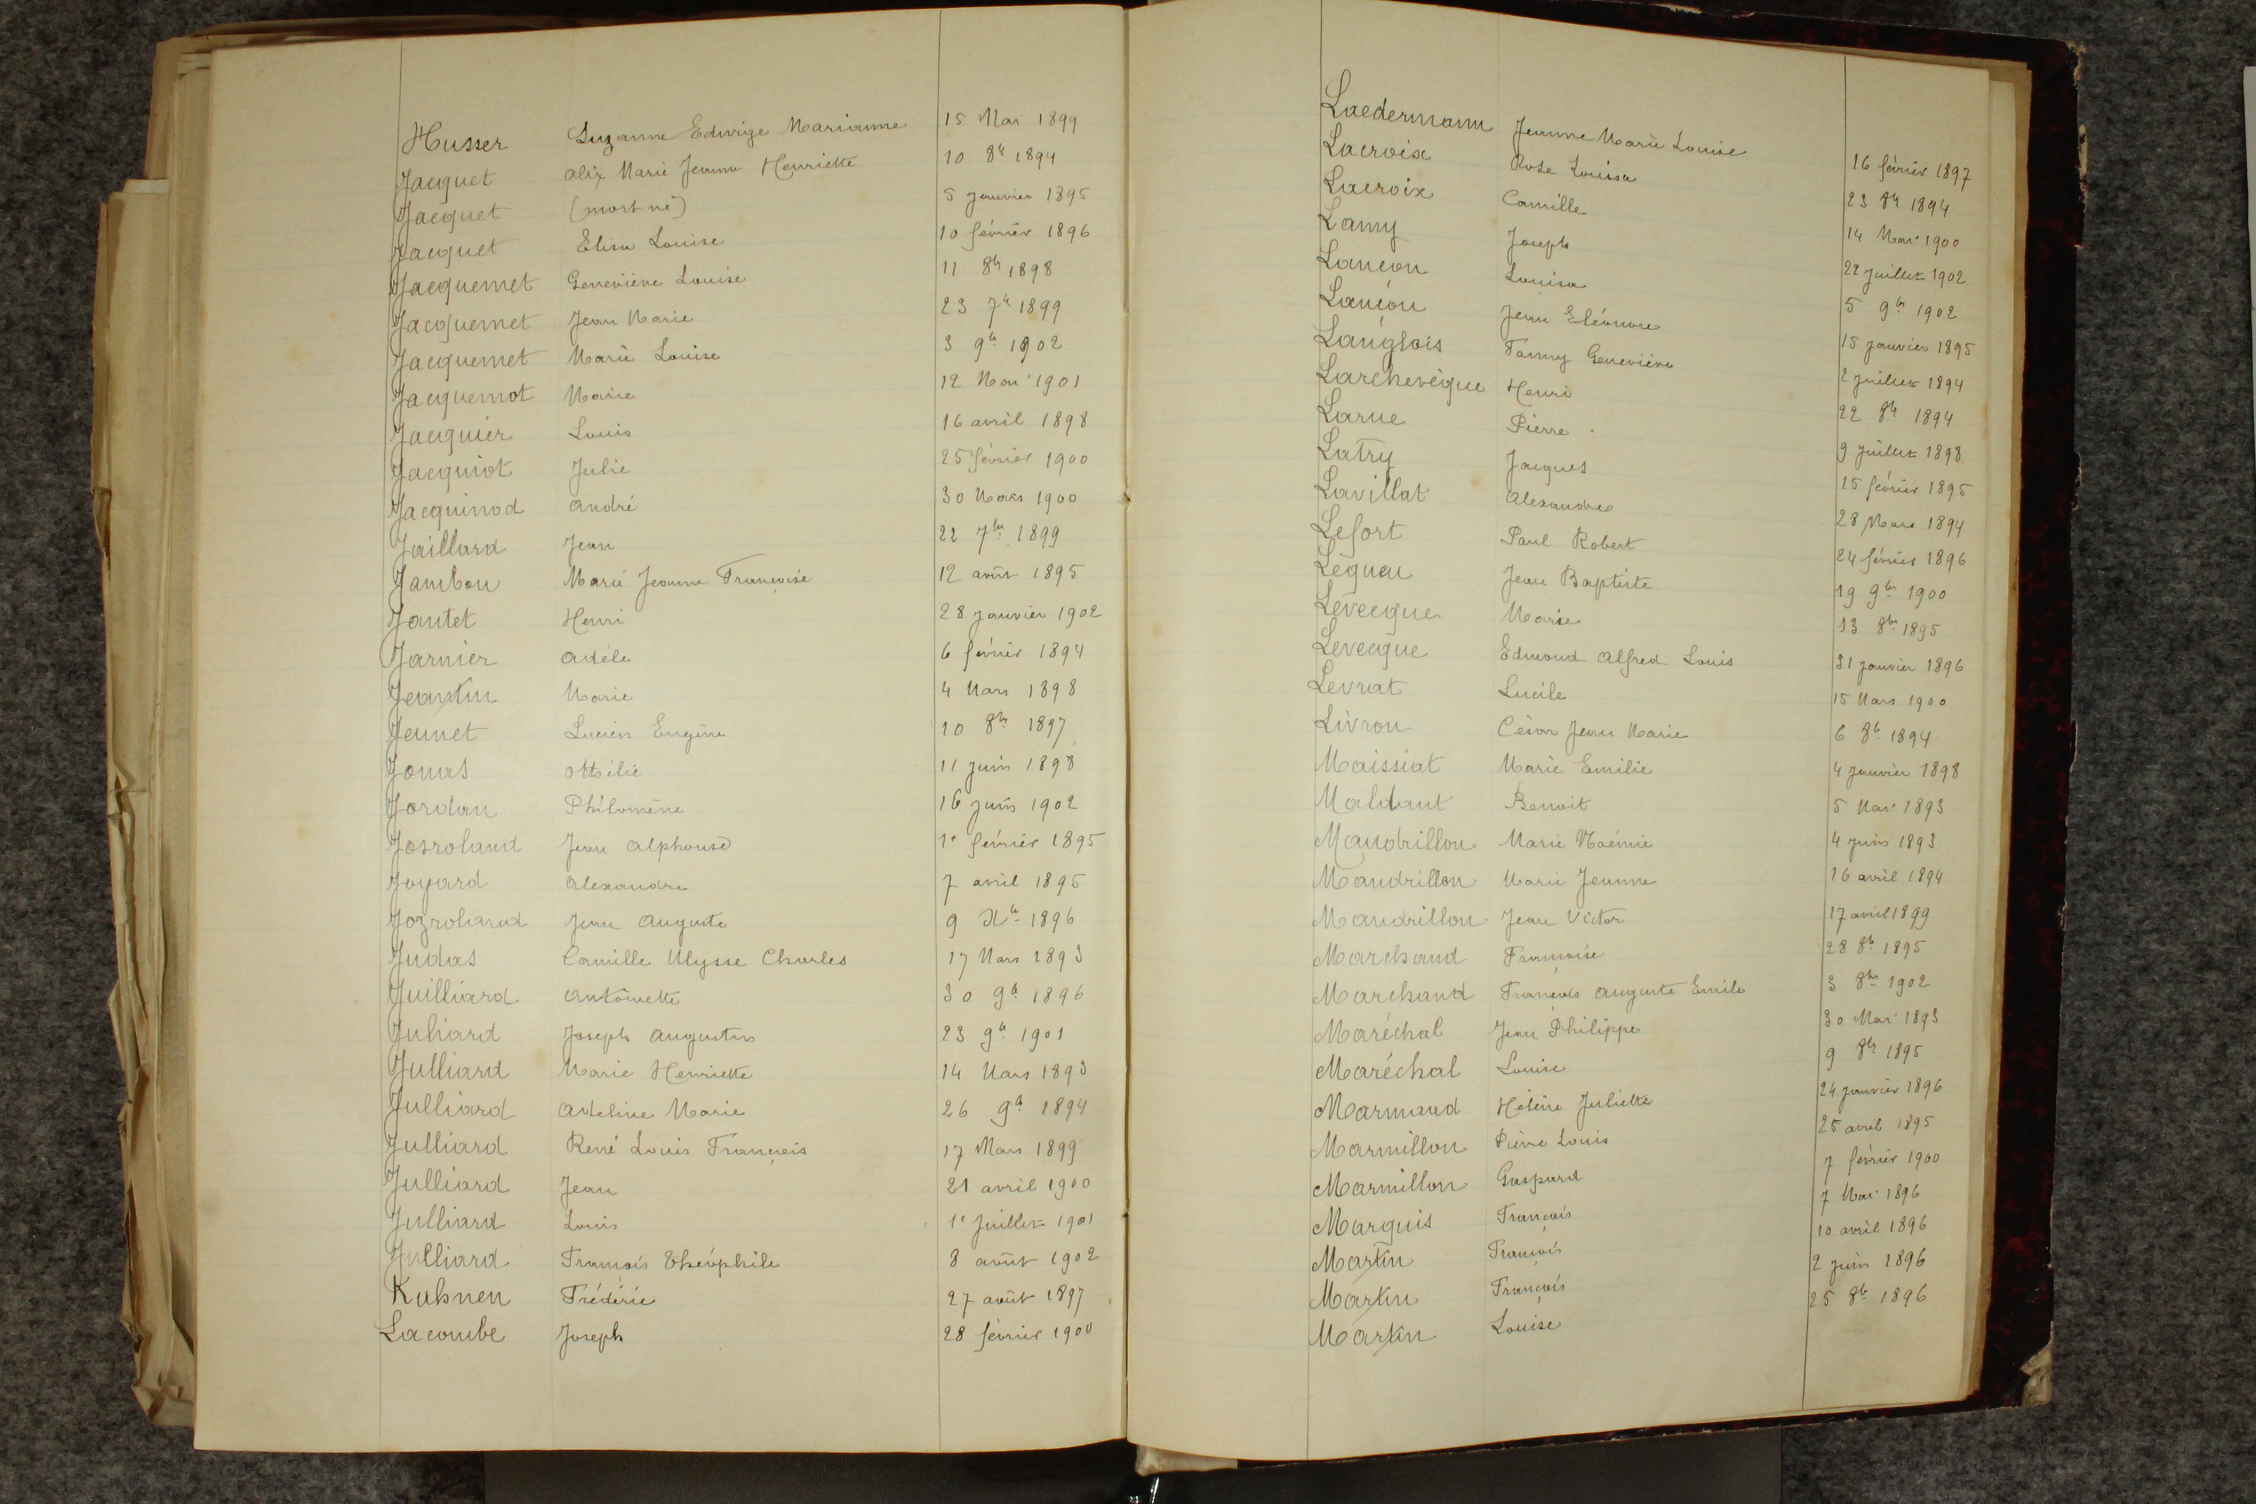 Husser Suzanne Edwige Marianne 15 Mai 1899
Jacquet Alix Marie Jeanne Henriette 10 8bre 1894
Jacquet (mort né) 5 janvier 1895
Jacquet Elisa Louise 10 février 1896
Jacquemet Geneviève Louise 11 8bre 1898
Jacquemet Jean Marie 23 7bre 1899
Jacquemet Marie Louise 3 9bre 1902
Jacquemot Marie 12 Mai 1901
Jacquier Louis 16 avril 1898
Jacquiot Julie 25 février 1900
Jacquinod André 30 Mars 1900
Jaillard Jean 22 7bre 1899
Jambon Marie Jeanne Françoise 12 août 1895
Jantet Henri 28 janvier 1902
Jarnier Adèle 6 février 1894
Jeantin Marie 4 Mars 1898
Jeunet Lucien Eugène 10 8bre 1897
Jonas Ottilie 11 juin 1898
Jordan Philomène 16 juin 1902
Josroland Jean Alphonse 1er février 1895
Joyard Alexandre 7 avril 1895
Jozroland Jean Auguste 9 Xbre 1896
Judas Camille Ulysse Charles 17 Mars 1893
Juilliard Antoinette 30 9bre 1896
Juliard Joseph Augustin 23 9bre 1901
Julliard Marie Henriette 14 Mars 1893
Julliard Adeline Marie 26 9bre 1894
Julliard René Louis François 17 Mars 1899
Julliard Jean 21 avril 1900
Julliard Louis 1er Juillet 1901
Julliard François Théophile 8 août 1902
Kuhnen Frédéric 27 août 1897
Lacombe Joseph 28 février 1900
Laedermann Jeanne Marie Louise 16 février 1897
Lacroix Rose Louisa 23 8bre 1894
Lacroix Camille 14 Mai 1900
Lamy Joseph 22 juillet 1902
Lançon Louisa 5 9bre 1902
Lançon Jean Eléonore 15 janvier 1895
Langlois Fanny Geneviève 2 juillet 1894
Larchevêque Henri 22 8bre 1894
Larue Pierre 9 juillet 1898
Latry Jacques 15 février 1895
Lavillat Alexandre 28 Mars 1894
Lefort Paul Robert 24 février 1896
Legueu Jean Baptiste 19 9bre 1900
Levecque Marie 13 8bre 1895
Levecque Edmond Alfred Louis 31 janvier 1896
Levrat Lucile 15 Mars 1900
Livron César Jean Marie 6 8bre 1894
Maissiat Marie Emilie 4 janvier 1898
Maldant Benoit 5 Mai 1893
Mandrillon Marie Noémie 4 juin 1893
Mandrillon Marie Jeanne 16 avril 1894
Mandrillon Jean Victor 17 avril 1899
Marchand Françoise 28 8bre 1895
Marchand François Auguste Emile 3 8bre 1902
Maréchal Jean Philippe 30 Mai 1893
Maréchal Louise 9 8bre 1895
Marmand Hélène Juliette 24 janvier 1896
Marmillon Pierre Louis 25 avril 1895
Marmillon Gaspard 7 février 1900
Marquis François 7 Mai 1896
Martin François 10 avril 1896
Martin François 2 juin 1896
Martin Louise 25 8bre 1896